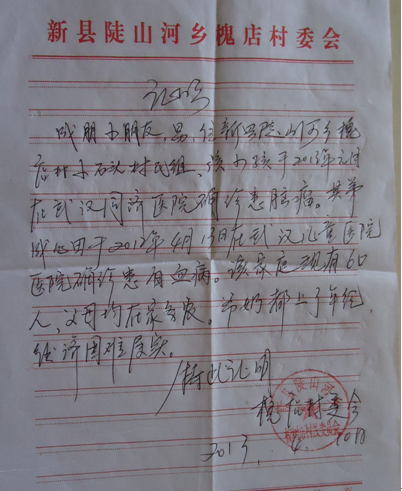 新县陡山河乡槐店村委会
证明
成朋小朋友,男,住新县陡山河乡槐
店村小石头村民组,该小孩于2013年元月
在武汉同济医院确诊患脑瘤。其弟
成 于2013年4月13日在武汉儿童医院
医院确诊患有血病。该家庭现有6口
人,父母均在家务农。爷奶都上了年纪,
经济困难属实。
特此证明
槐店村委会
2013. 4. 10日